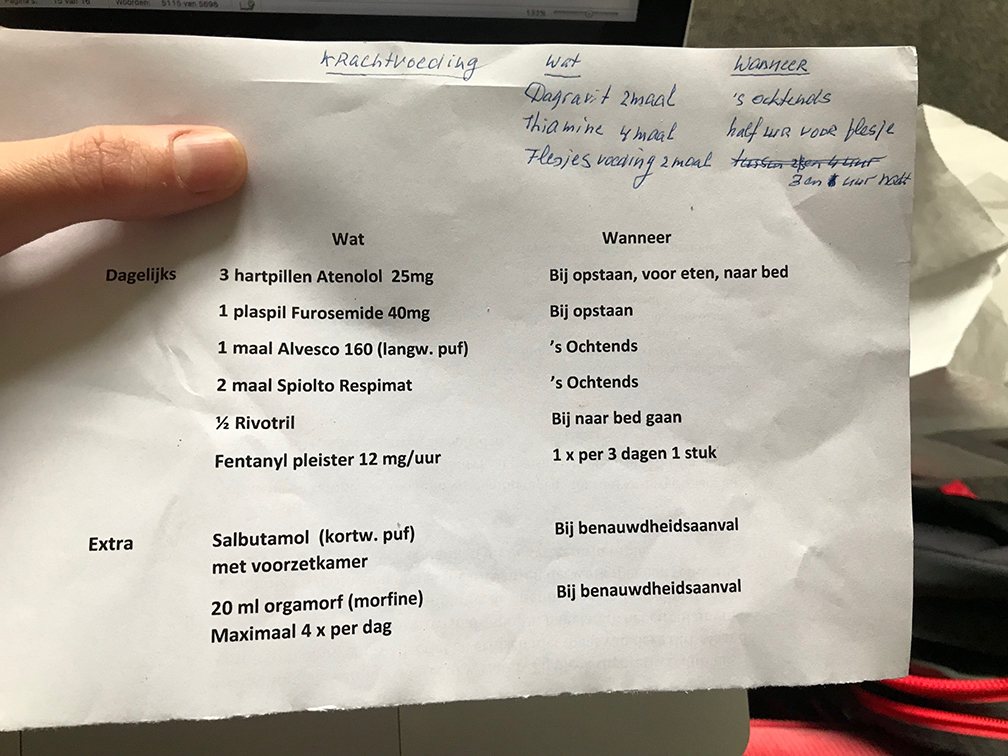 Pagina 15 van 16 Woorden: 5115 van 5696 132%
KRachtvoeding Wat Wanneer
Dagravit 2maal 's ochtends
Thiamine 4 maal half uur voor flesje
Flesjes voeding 2 maal tussen 2 en 4 uur
3 en uur
Wat Wanneer
Dagelijks 3 hartpillen Atenolol 25mg Bij opstaan, voor eten, naar bed
1 plaspil Furosemide 40mg Bij opstaan
1 maal Alvesco 160 (langw. puf) 's Ochtends
2 maal Spiolto Respimat 's Ochtends
½ Rivotril Bij naar bed gaan
Fentanyl pleister 12 mg/uur 1 x per 3 dagen 1 stuk
Extra Salbutamol (kortw. puf) Bij benauwdheidsaanval
met voorzetkamer
20 ml orgamorf (morfine) Bij benauwdheidsaanval
Maximaal 4 x per dag